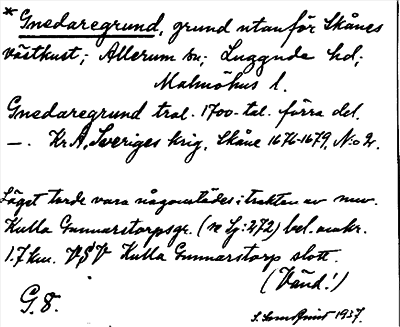 * Gnedaregrund, grund utanför Skånes
västkust; Allerum sn; Luggude hd;
Malmöhus l.
Gnedaregrund trol. 1700-tal. förra del.
—. Kr.A, Sveriges krig, Skåne 1676-1679, N:o 2.
Läget torde vara någonstädes i trakten av nuv.
Kulla Gunnarstorpsgr. (se Sj: 272) bel. omkr.
1.7 km. V§V Kulla Gunnarstorp slott.
(Vänd!)
G. 8.
1937.